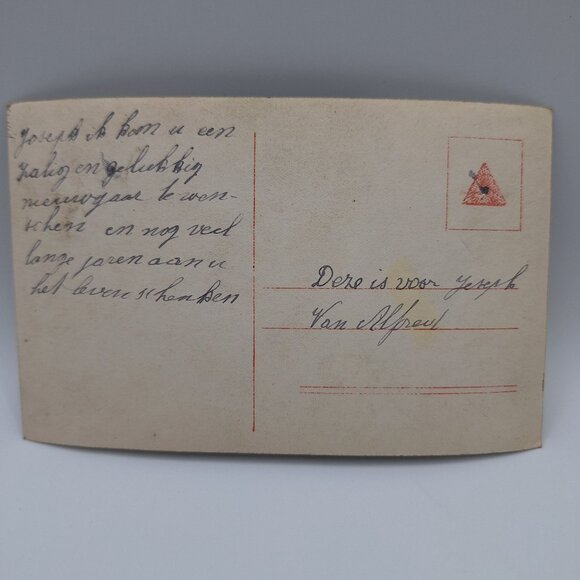 Joseph ik kom u een
zalig en gelukkig
nieuwjaar te wen-
schen en nog veel
lange jaren aan u
het leven schenken
Deze is voor Joseph
Van Alfred